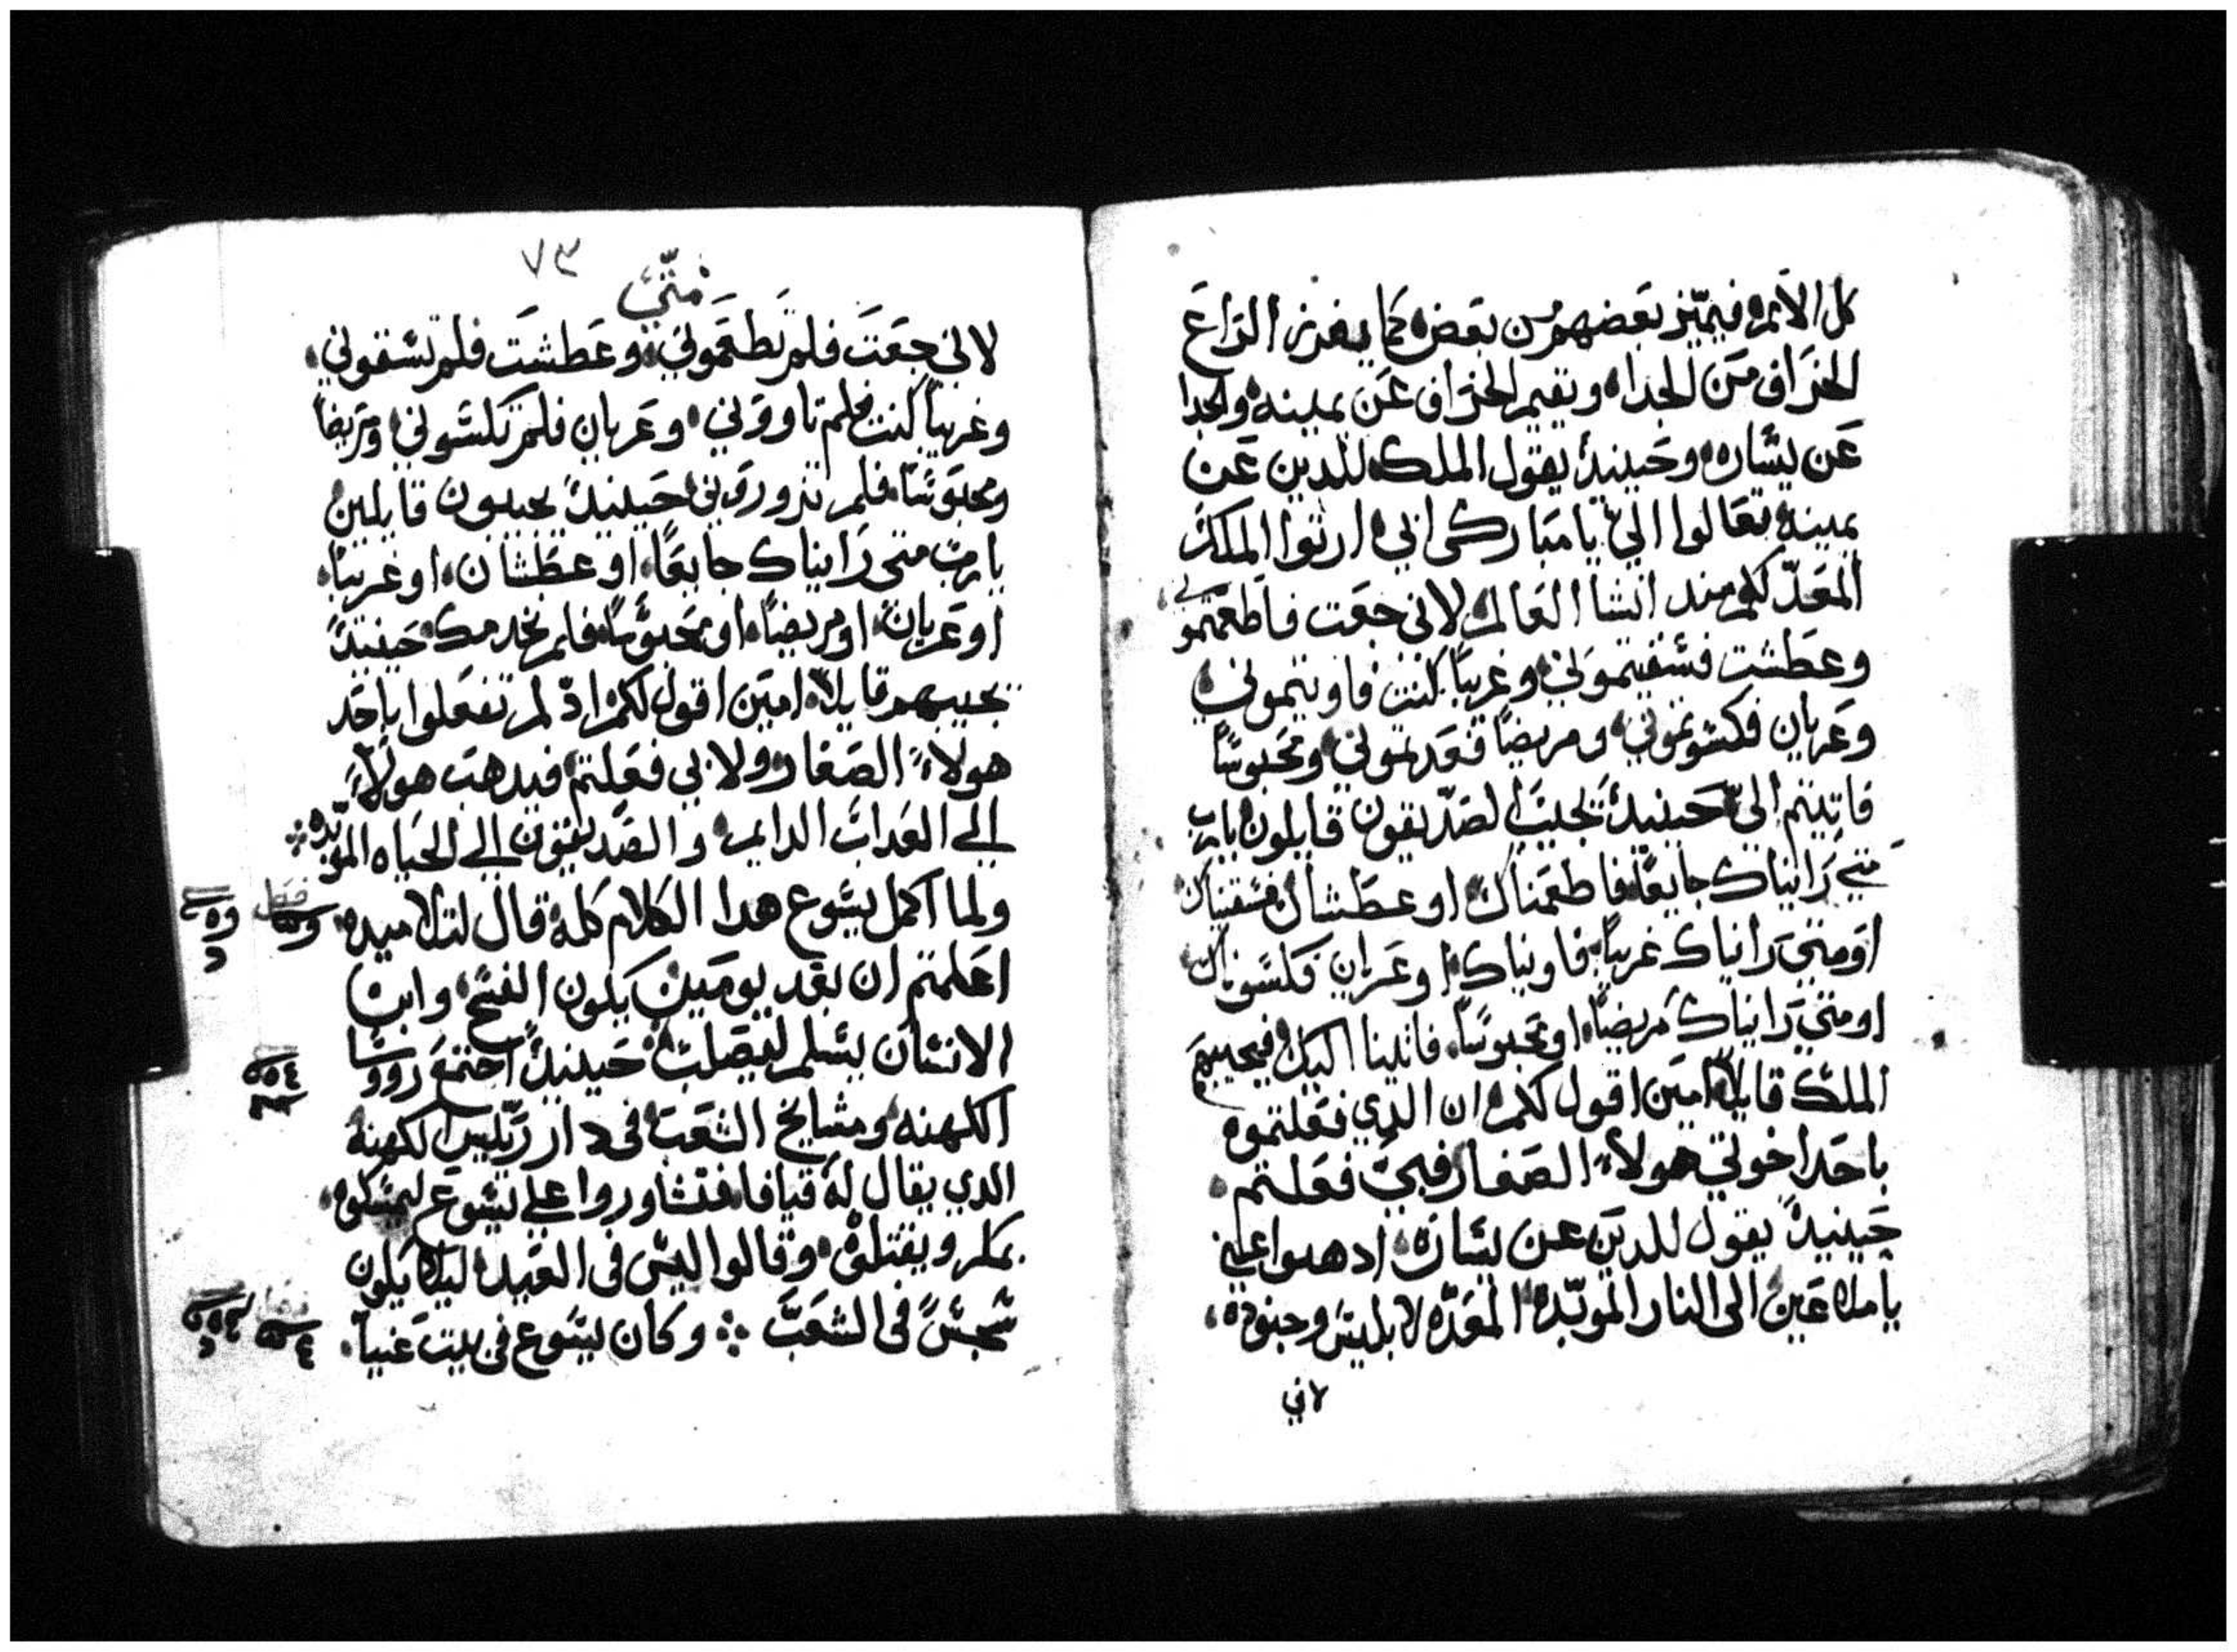 كل الامم فيميّز بعضهم من بعض كما يفرز الراع
الخراف من الجدا، ويقيم الخراف عن يمينه والجدا
عن يساره وحينيدٍ يقول الملك للدين عن
يمينه تعالوا اليّ يا مباركي ابي ارثوا الملك
المعدّ لكم مند انشا العالم لاني جعت فاطعمتموني
وعطشت فسقيتموني وغريبًا كنت فاويتموني
وعريان فكسوتموني ومريضًا فعدتموني ومحبوسًا
فاتيتم اليّ حينيدٍ يجيب الصدّيقون قايلون يارب
متي رايناك جايعًا فاطعمناك او عطشان فسقيناك
او متي رايناك غريبًا فاويناك او عريان فكسوناك
او متي رايناك مريضًا او محبوسًا فاتينا اليك فيجيبهم
الملك قايلاً امين اقول لكم ان الدي فعلتموه
باحد اخوتي هولاء الصغار فبي فعلتم
حينيدٍ يقول للدين عن يساره ادهبوا عني
يا ملاعين الى النار الموبّده المعدّه لابليس وجنوده
لاني
٧٣
متّي
لاني جعت فلم تطعموني وعطشت فلم تسقوني
وغريبًا كنت فلم تاووني وعريان فلم تكسوني ومريضًا
ومحبوسًا فلم تزوروني حينيدٍ يجيبون قايلين
يا رب متى رايناك جايعًا او عطشان او غريبًا
او عريان او مريضًا او محبوسًا فلم نخدمك حينيدٍ
يجيبهم قايلاً امين اقول لكم اد لم تفعلوا باحد
هولاء الصغار ولا بي فعلتم فيدهب هولاء
الي العداب الدايم والصديقون الي الحياه الموبّده
ولما اكمل يسوع هدا الكلام كله قال لتلاميده
اعلمتم ان بعد يومين يكون الفسح وابن
الانسان يسلم ليصلب حينيدٍ اجتمع رووسا
الكهنه ومشايخ الشعب في دار رييس الكهنه
الدي يقال له قيافا فتشاوروا علي يسوع ليمسكوه
بمكر ويقتلوه وقالوا ليس في العيد ليلا يكون
شجس في الشعب وكان يسوع في بيت عنيا
فصل